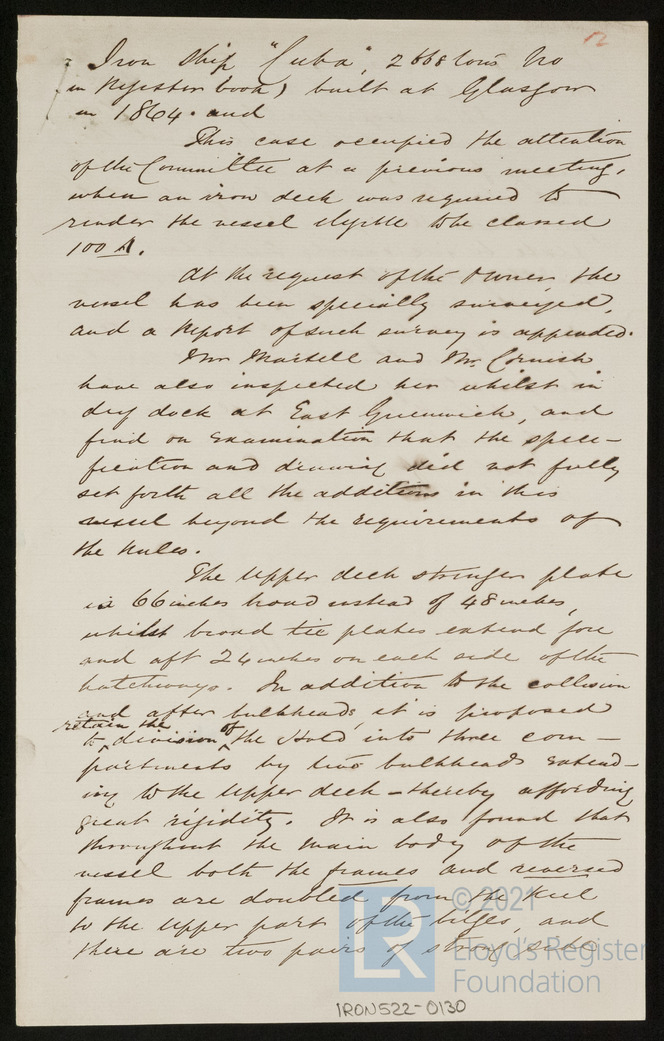 12
Iron Ship "Cuba", 2668 tons No
in Register book, built at Glasgow
in 1864. and
This case occupied the attention
of the Committee at a previous meeting,
when an iron deck was required to
render the vessel eligible to be classed
100 A.
At the request of the Owner the
vessel has been specially surveyed,
and a Report of such survey is appended.
Mr Martell and Mr. Cornish
have also inspected her whilst in
dry dock at East Greenwich, and
find on examination that the speci-
fication and drawing did not fully
set forth all the additions in this
vessel beyond the requirements of
the Rules.
The Upper deck stringer plate
is 66 inches broad instead of 48 inches,
whilst broad tie plates extend fore
and aft 24 inches on each side of the
hatchways. In addition to the collision
and after bulkheads, it is proposed
to retain the division of the Hold into three com-
partments by two bulkheads extend-
ing to the Upper deck - thereby affording
great rigidity. It is also found that
throughout the main body of the
vessel both the frames and reversed
frames are doubled from the Keel
to the upper part of the bilges, and
there are two pairs of strong side
© 2021
Lloyd's Register
Foundation
IRON522-0130